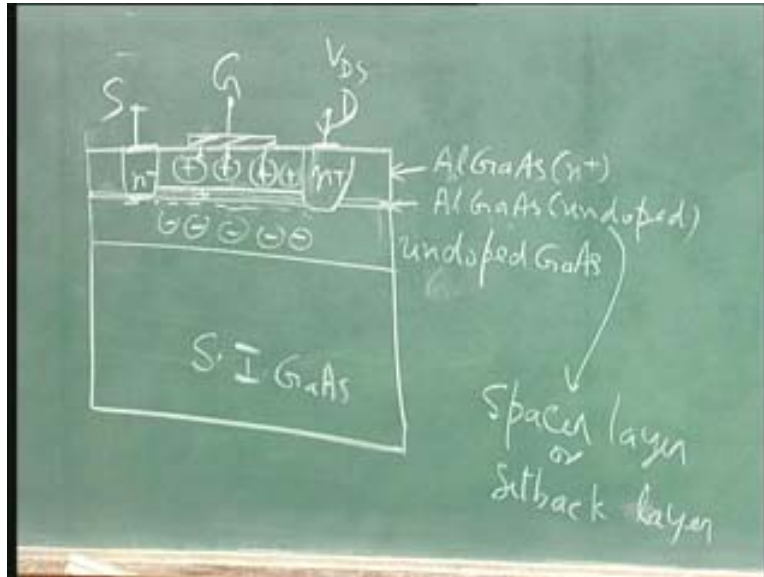 V_DS
S G D
n+ + + + + n+
AlGaAs(n+)
AlGaAs(undoped)
undoped GaAs
- - - - -
S.I GaAs
Spacer layer
or
Setback layer